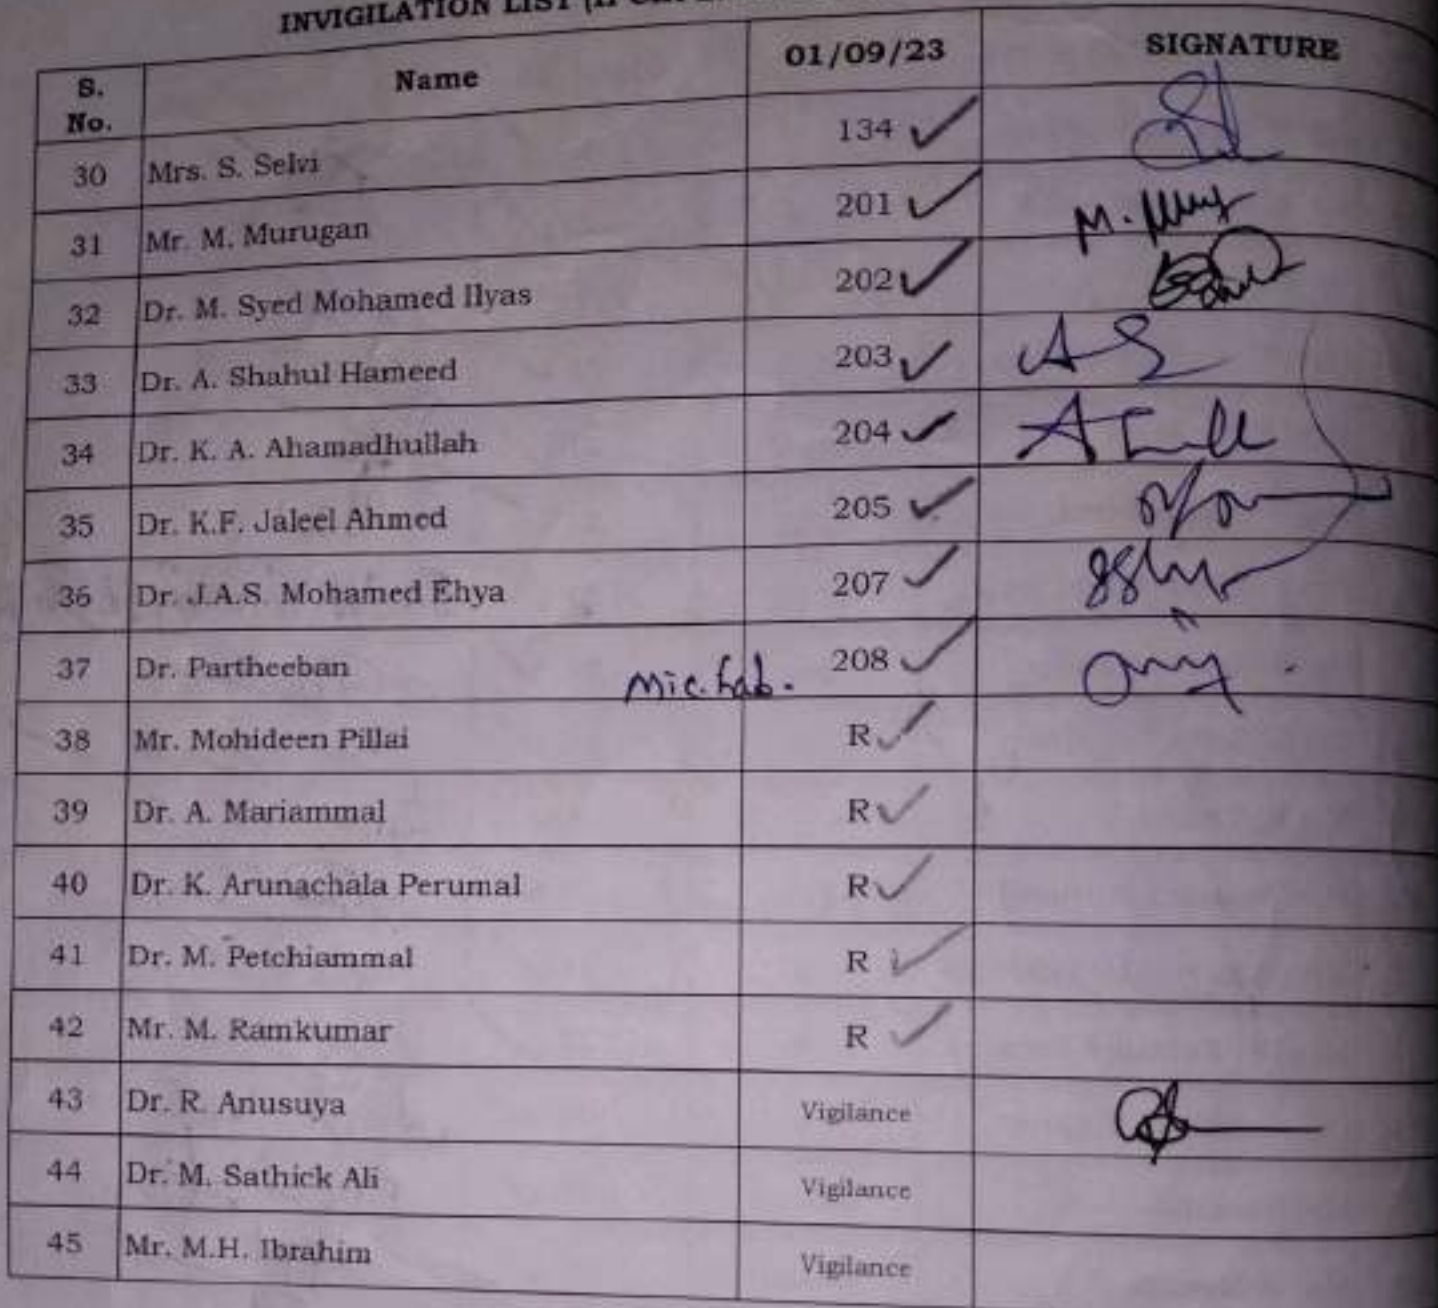 INVIGILATION LIST
S. No. Name 01/09/23 SIGNATURE
30 Mrs. S. Selvi 134
31 Mr. M. Murugan 201 M.
32 Dr. M. Syed Mohamed Ilyas 202
33 Dr. A. Shahul Hameed 203 AS
34 Dr. K. A. Ahamadhullah 204
35 Dr. K.F. Jaleel Ahmed 205
36 Dr. J.A.S. Mohamed Ehya 207
37 Dr. Partheeban Mic. Lab. 208
38 Mr. Mohideen Pillai R
39 Dr. A. Mariammal R
40 Dr. K. Arunachala Perumal R
41 Dr. M. Petchiammal R
42 Mr. M. Ramkumar R
43 Dr. R. Anusuya Vigilance
44 Dr. M. Sathick Ali Vigilance
45 Mr. M.H. Ibrahim Vigilance